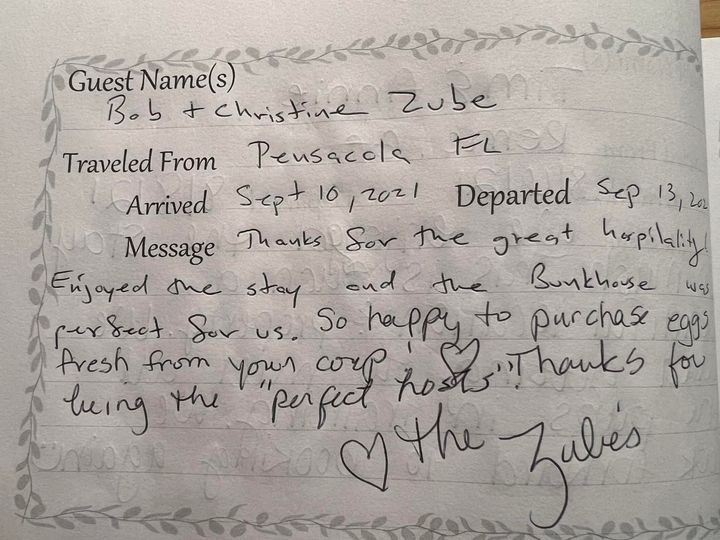 Guest Name(s)
Bob + Christine Zube
Traveled From Pensacola FL
Arrived Sept 10, 2021 Departed Sep 13, 202
Message Thanks for the great hospitality!
Enjoyed the stay and the Bunkhouse was
perfect for us. So happy to purchase eggs
fresh from your coop! ♡ Thanks for
being the "perfect hosts".
♡ The Zube's